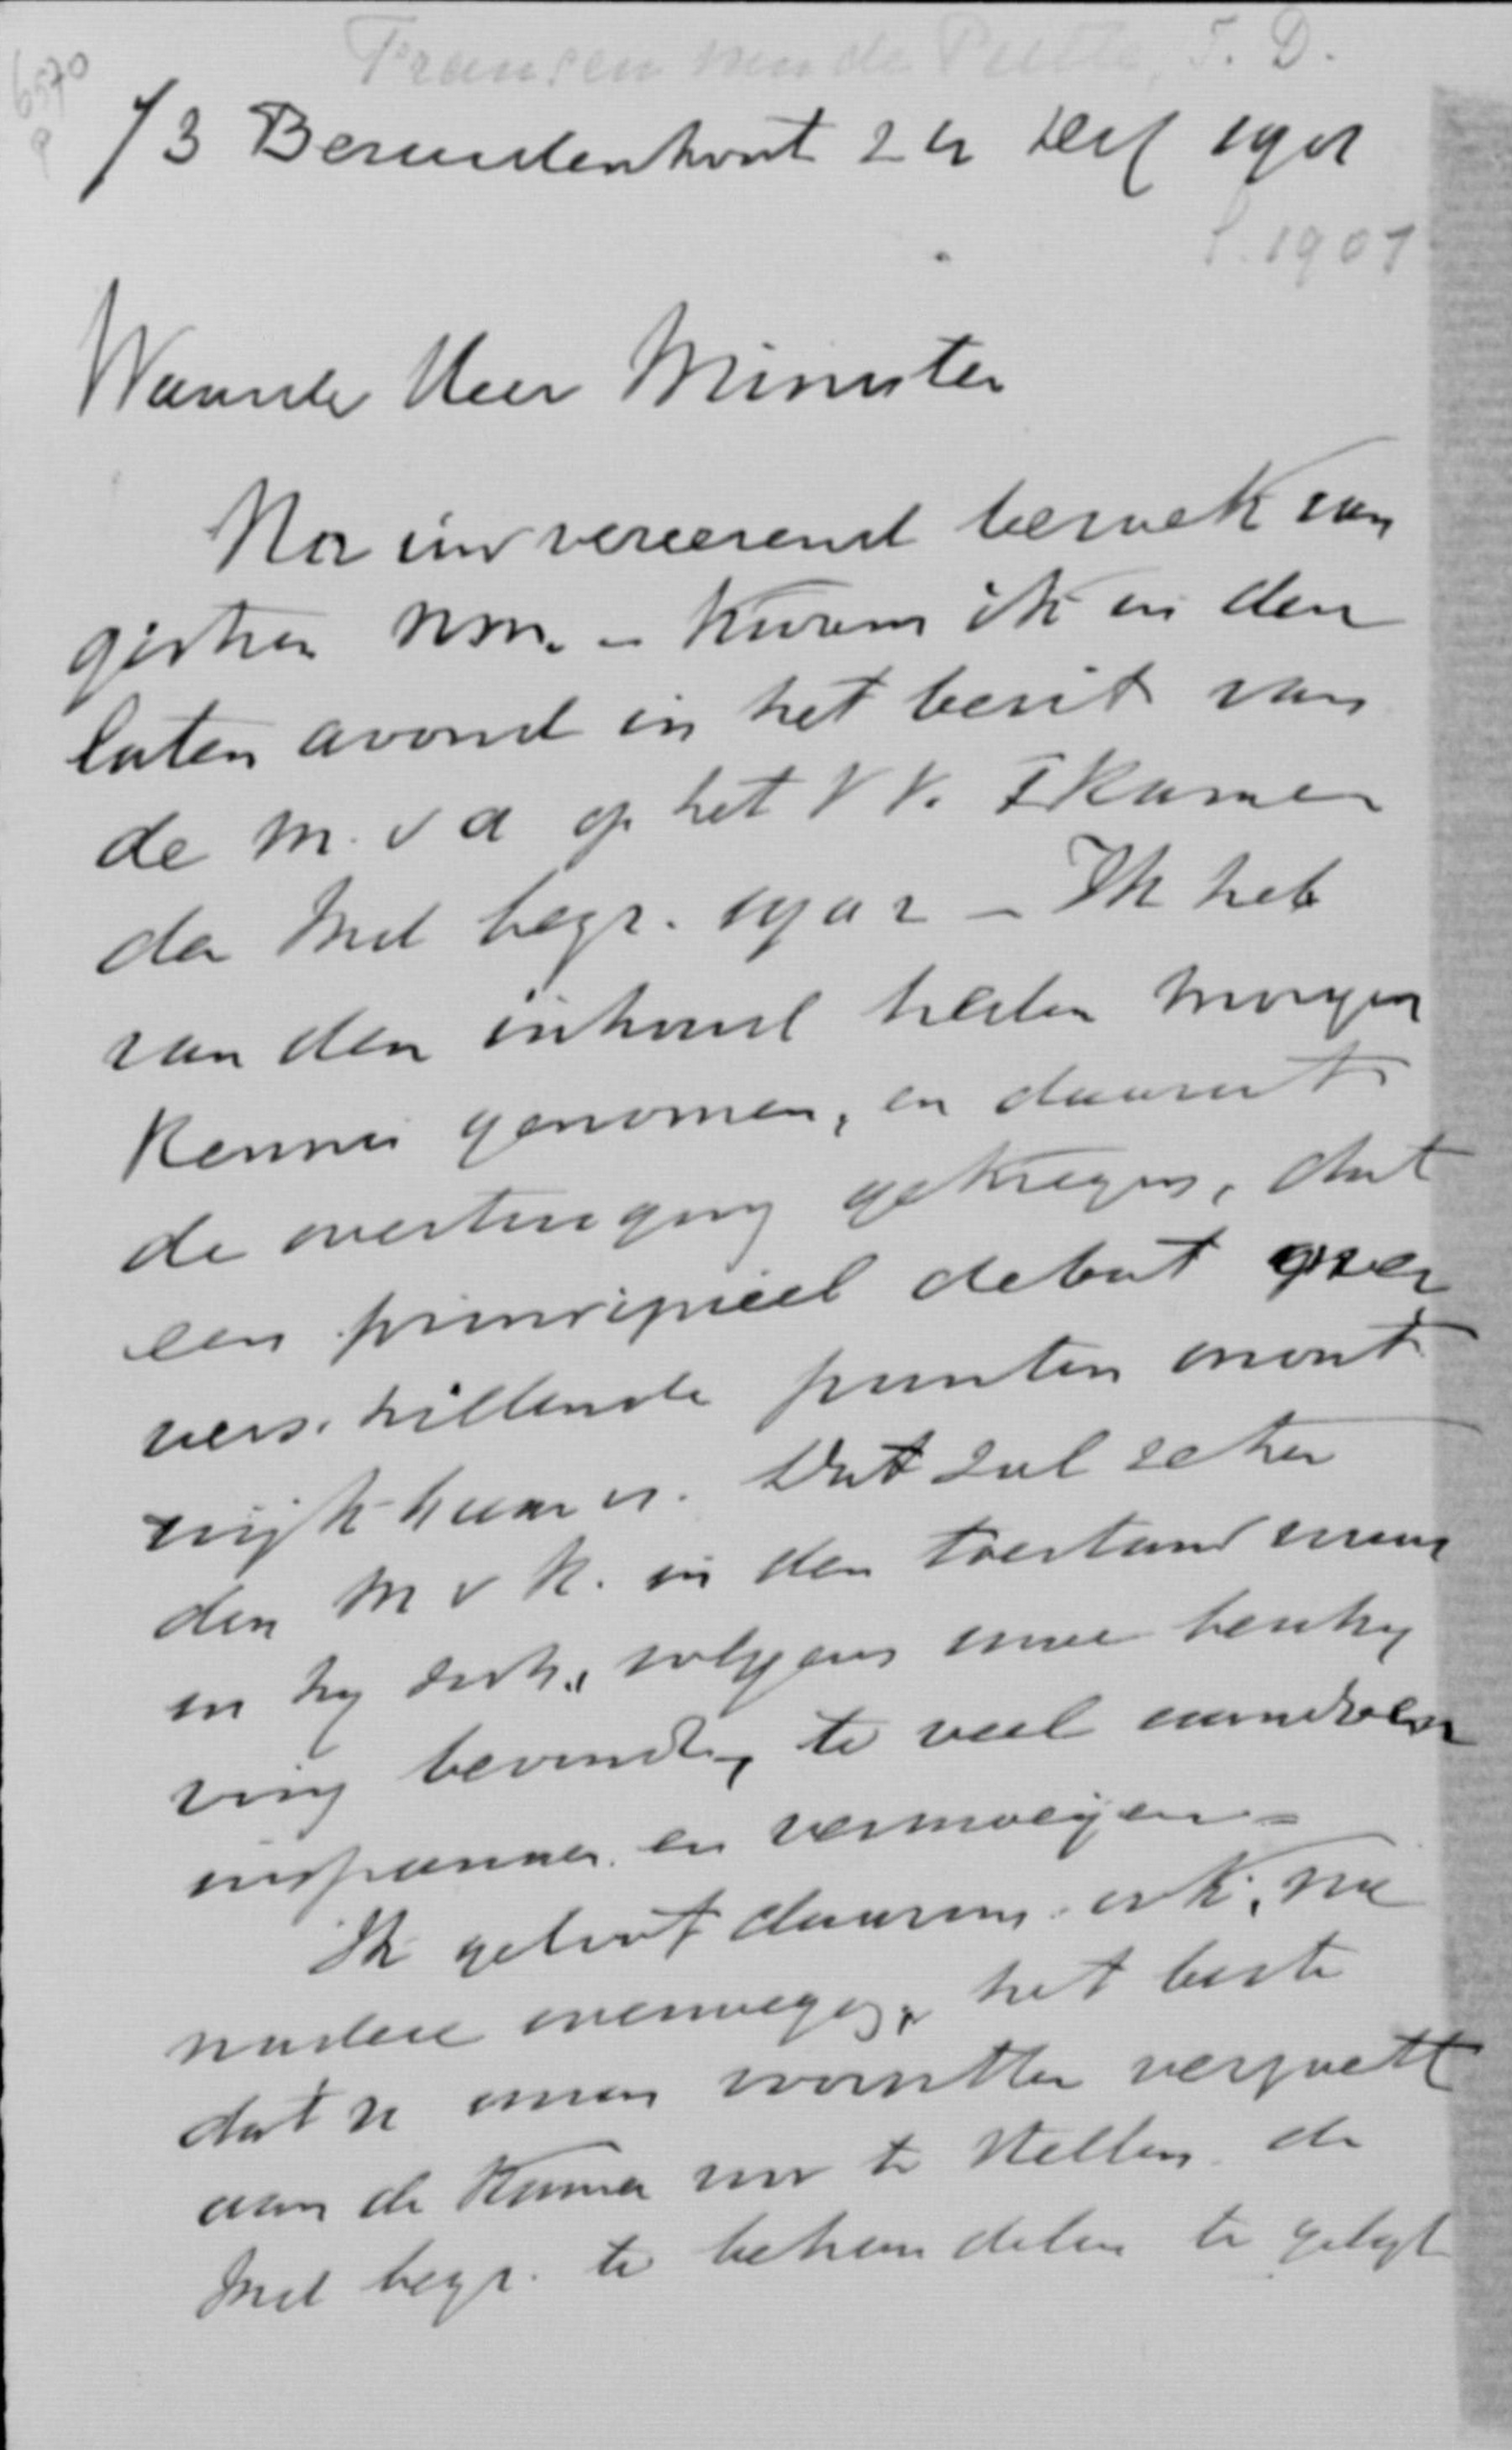 6570
Fransen van de Putte, I. D.
/3 Bezuidenhout 24 Dec 1901
1901
Waarde Heer Minister
Na uw vereerend bezoek van
gistren nm. - kwam ik in den
laten avond in het bezit van
de M. v A op het VV. I Kamer
der Ind begr. 1902 - Ik heb
van den inhoud heden morgen
kennis genomen, en daaruit
de overtuiging gekregen, dat
een principieel debat over
verschillende punten
Dat zal zeker
den M v K. in den toestand waar
in hy zich, volgens uwe beschry
ving bevindt, te veel
inspannen en vermoeijen -
Ik geloof daarom ook, na
nadere overweging, het beste
dat n
aan de Kamer voor te stellen de
Ind begr. te behandelen te gelijk